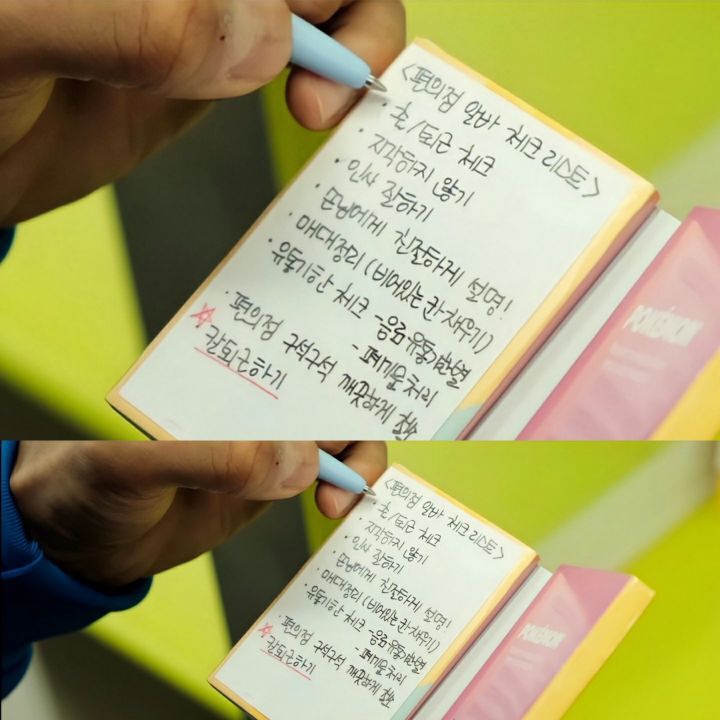 <편의점 알바 체크리스트>
· 출/퇴근 체크
· 지각하지 않기
· 인사 잘하기
· 손님에게 친절하게 설명!
· 매대정리 (비어있는 칸 채우기)
· 유통기한 체크 - 음료 유통기한별
- 폐기물 처리
· 편의점 구석구석 깨끗하게 청소
☆ 칼퇴근하기
POKÉMON
<편의점 알바 체크리스트>
· 출/퇴근 체크
· 지각하지 않기
· 인사 잘하기
· 손님에게 친절하게 설명!
· 매대정리 (비어있는 칸 채우기)
· 유통기한 체크 - 음료 유통기한별
- 폐기물 처리
· 편의점 구석구석 깨끗하게 청소
☆ 칼퇴근하기
POKÉMON